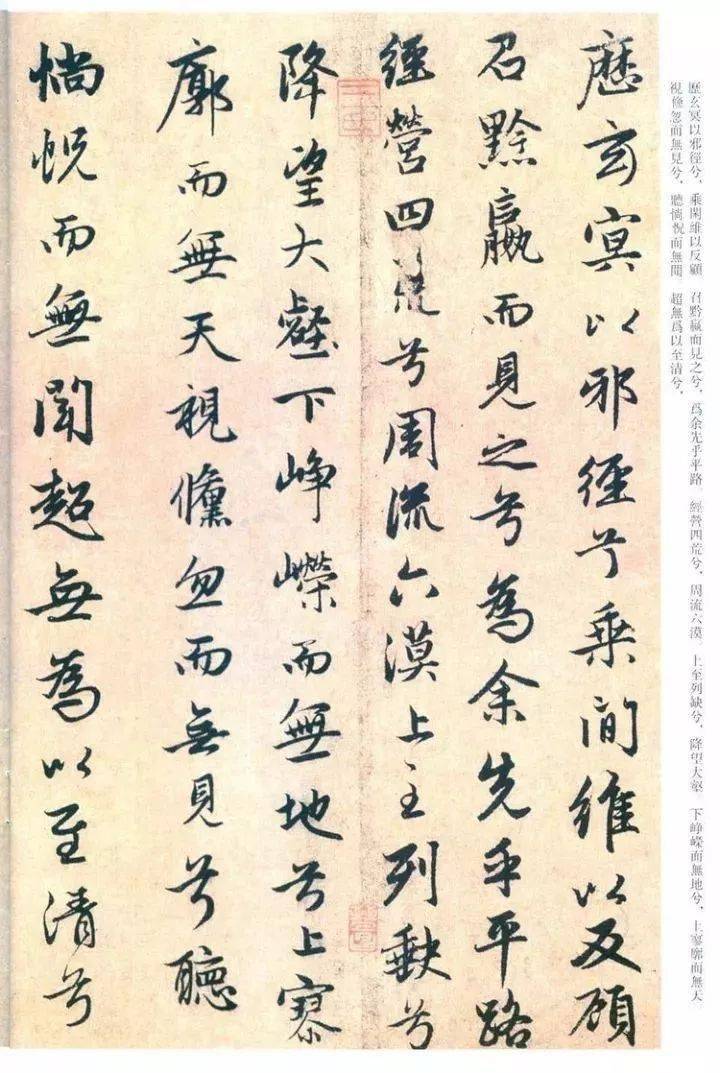 歷玄冥以邪徑兮，乘閒維以反顧　召黔嬴而見之兮，爲余先乎平路　經營四荒兮，周流六漠　上至列缺兮，降望大壑　下崢嶸而無地兮，上寥廓而無天
視倏忽而無見兮，聽惝怳而無聞　超無爲以至清兮，
歷玄冥以邪徑兮乘閒維以反顧
召黔嬴而見之兮為余先乎平路
經營四荒兮周流六漠上至列缺兮
降望大壑下崢嶸而無地兮上寥
廓而無天視儵忽而無見兮聽
惝怳而無聞超無為以至清兮